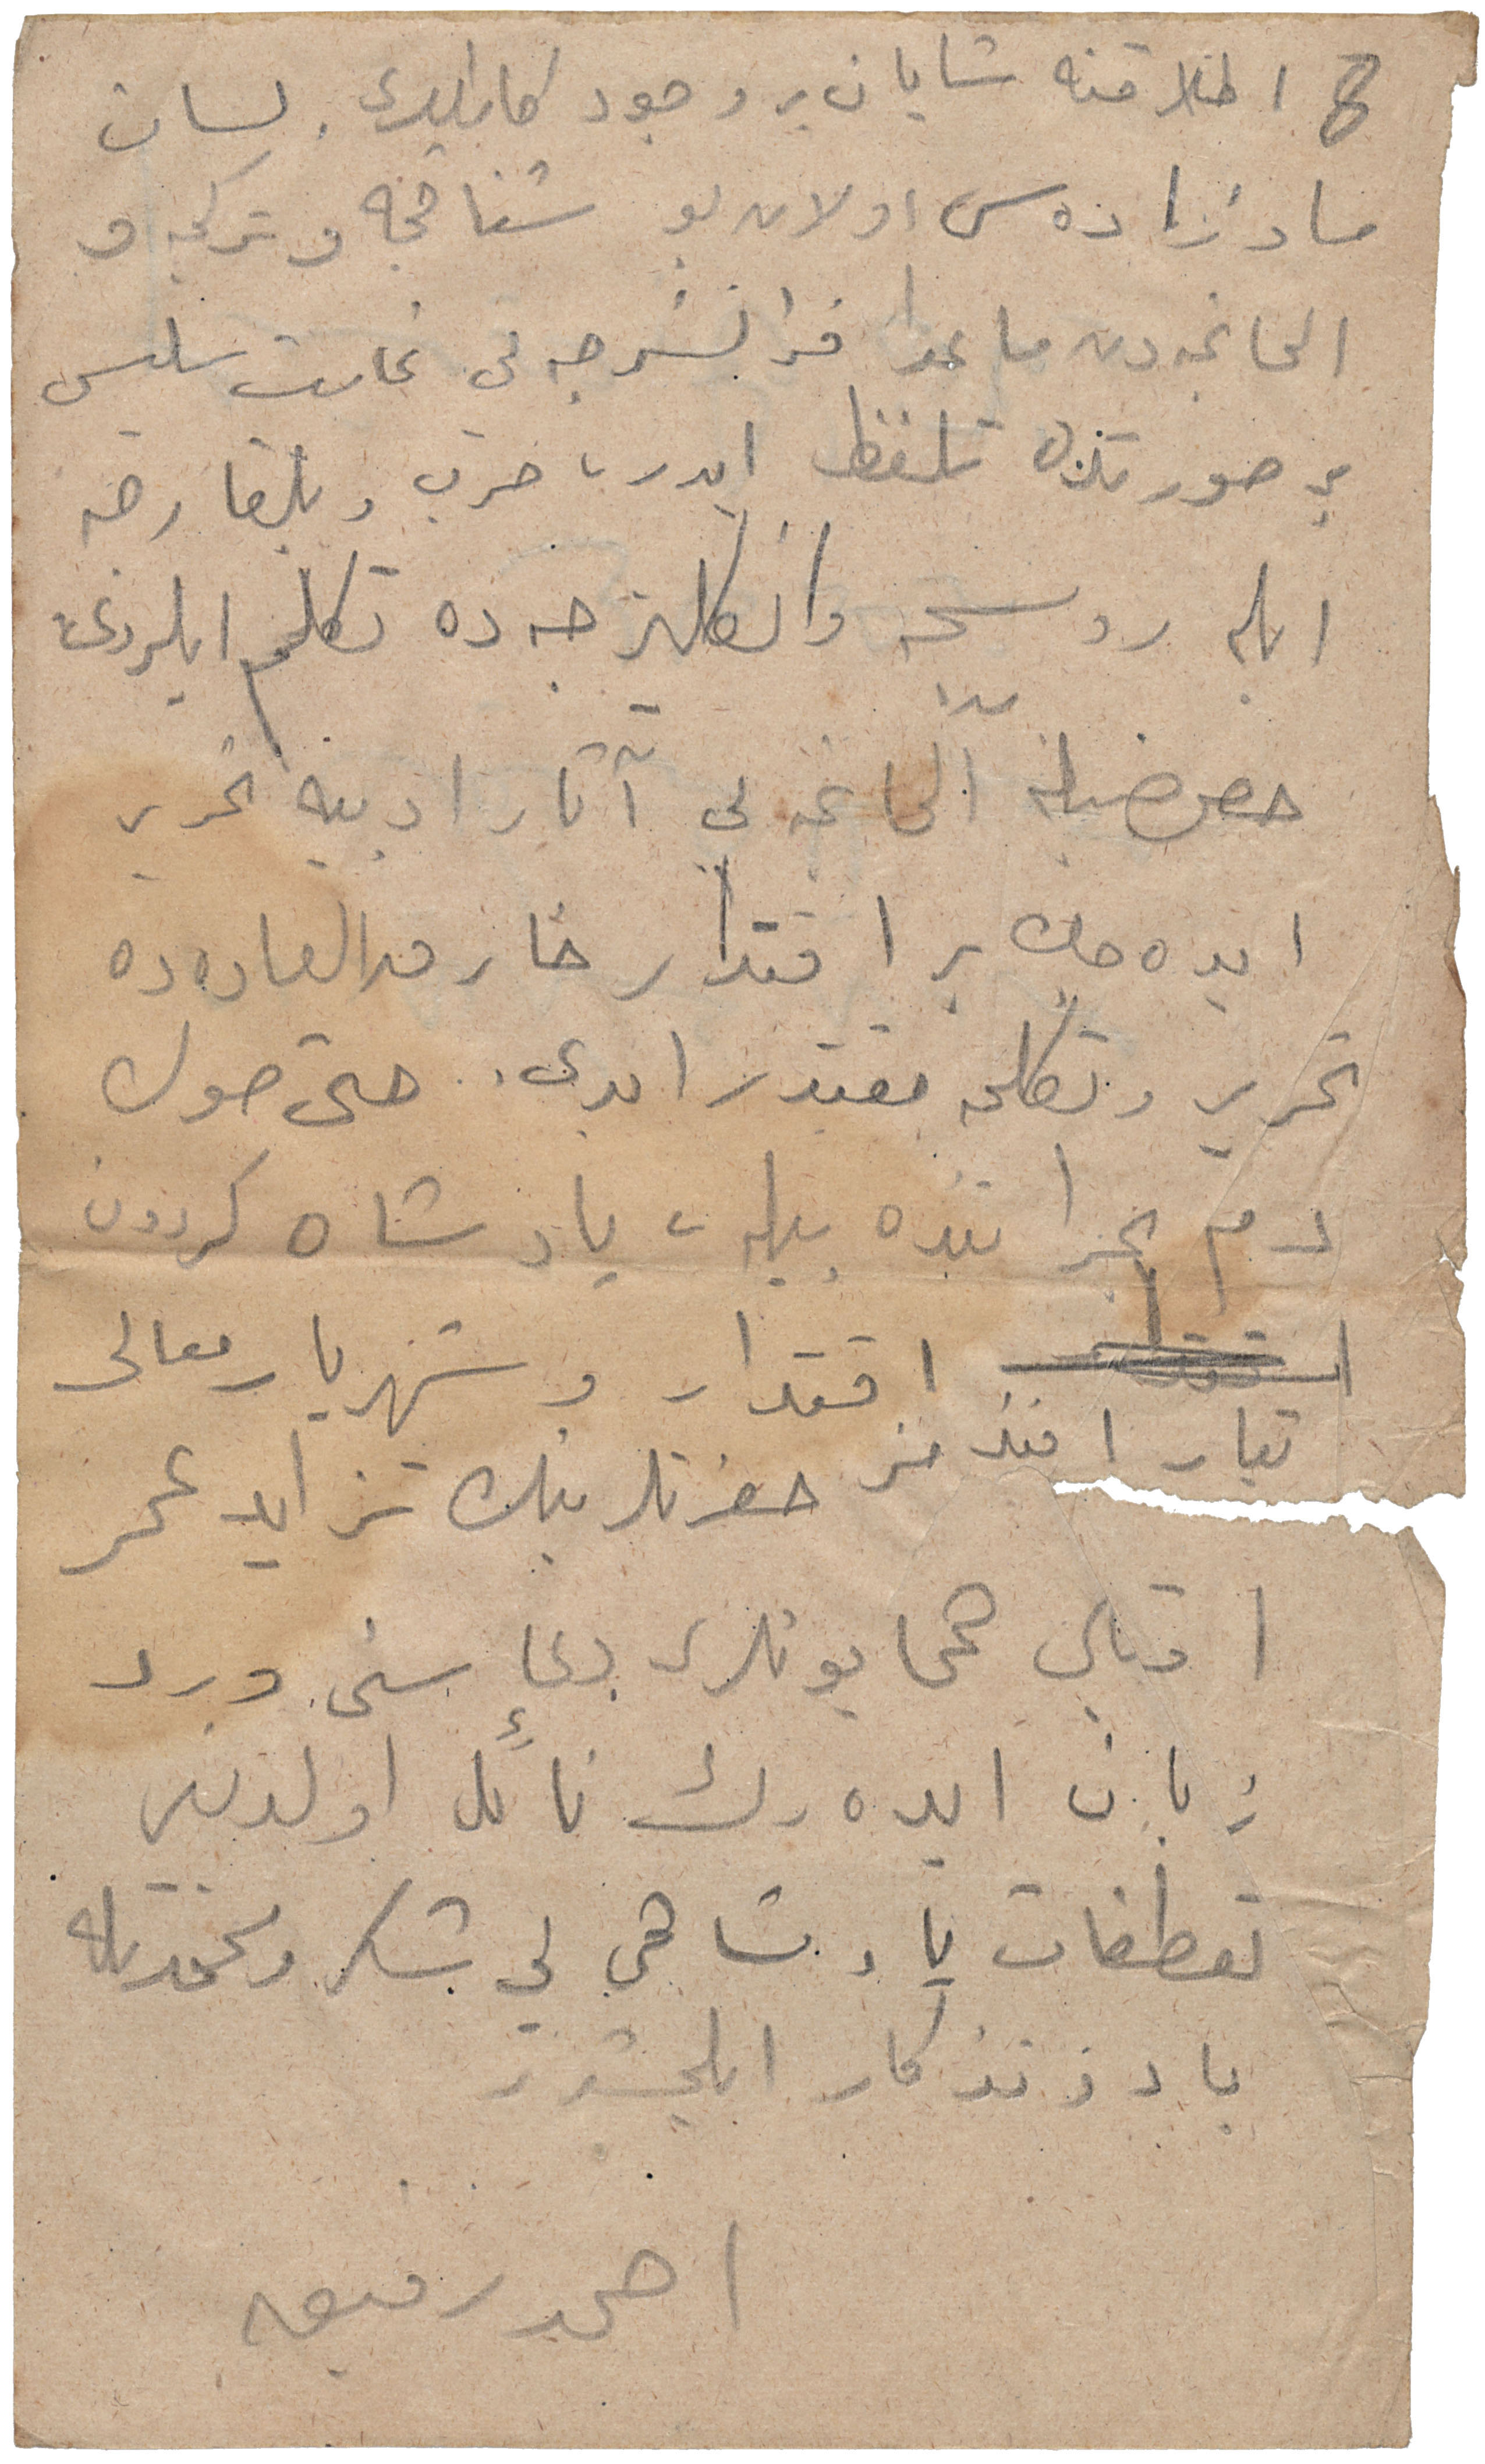 اطلاقنه شایان بر وجود كار ایدی. لسان
مادرزاده سی اولان بوشناقجه و تركجه و
المانجه دن ماعدا فرانسزجه لی غایت سلیس
بر صورتده تلفظ ایدر، صرب و بلغارجه
ایله روسجه و انكلیزجه ده تكلم ایلردی.
المانجه لی آثار ادبیه تحریر
ایده جك بر اقتدار خارق العاده ده
تحریر و تكلمه مقتدر ایدی. حتی صوك
دم بیله، پادشاه كردون
اقتدار و شهریار معالی
تبار افندمز حضرتلرینك تزاید عمر
اقبال همایونلری دعاسنی ورد
زبان ایده رك نائل اولدیغی
تعطفات پادشاهی لی شكر و محمدتله
یاد و تذكار ایلمشدر
احمد رفیق